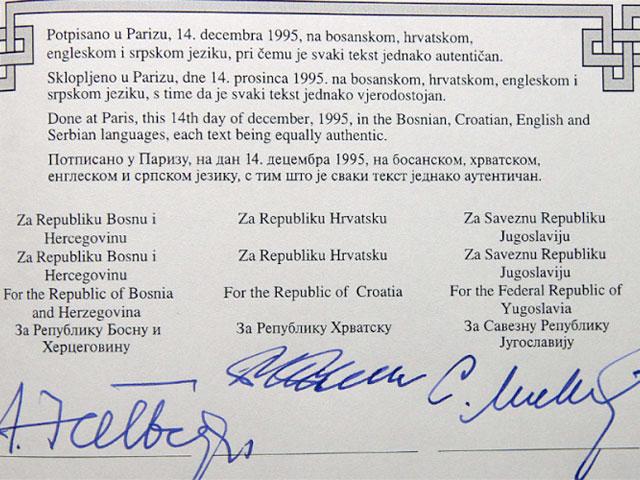 Potpisano u Parizu, 14. decembra 1995, na bosanskom, hrvatskom,
engleskom i srpskom jeziku, pri čemu je svaki tekst jednako autentičan.
Sklopljeno u Parizu, dne 14. prosinca 1995. na bosanskom, hrvatskom, engleskom i
srpskom jeziku, s time da je svaki tekst jednako vjerodostojan.
Done at Paris, this 14th day of december, 1995, in the Bosnian, Croatian, English and
Serbian languages, each text being equally authentic.
Потписано у Паризу, на дан 14. децембра 1995, на босанском, хрватском,
енглеском и српском језику, с тим што је сваки текст једнако аутентичан.
Za Republiku Bosnu i
Hercegovinu
Za Republiku Bosnu i
Hercegovinu
For the Republic of Bosnia
and Herzegovina
За Републику Босну и
Херцеговину
Za Republiku Hrvatsku
Za Republiku Hrvatsku
For the Republic of Croatia
За Републику Хрватску
Za Saveznu Republiku
Jugoslaviju
Za Saveznu Republiku
Jugoslaviju
For the Federal Republic of
Yugoslavia
За Савезну Републику
Југославију